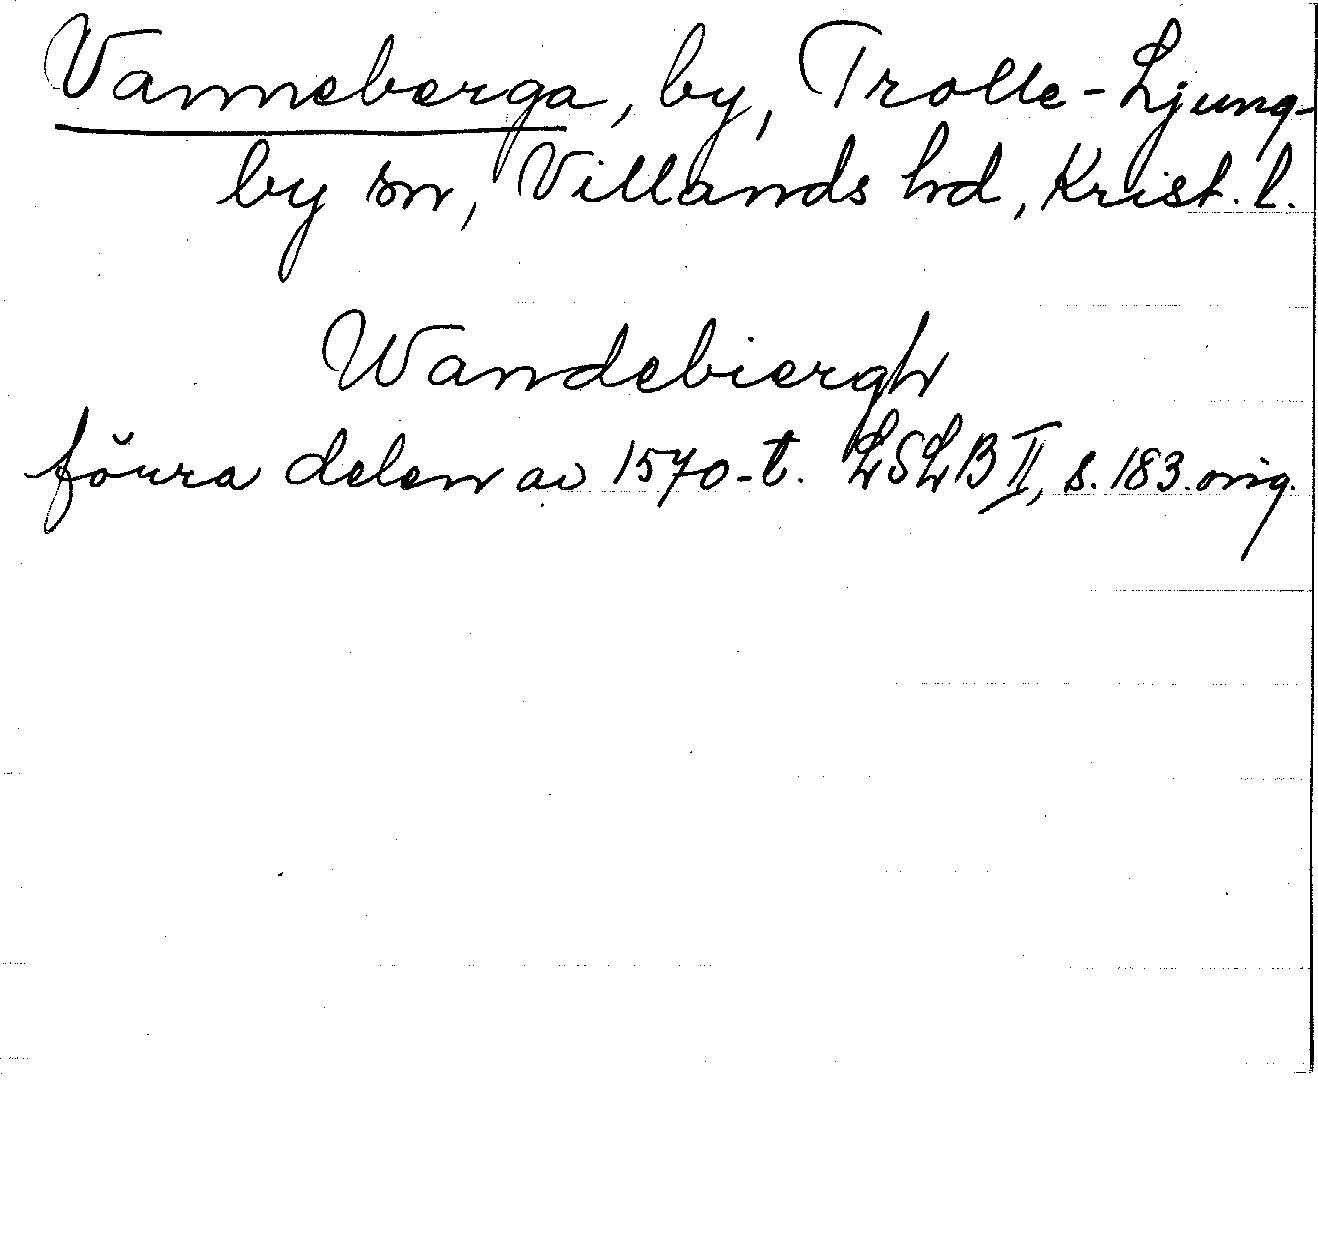 Vanneberga, by, Trolle-Ljung-
by sn, Villands hd, Krist. l.
Wandebiergh
förra delen av 1570-t. LSLB II, s. 183. orig.